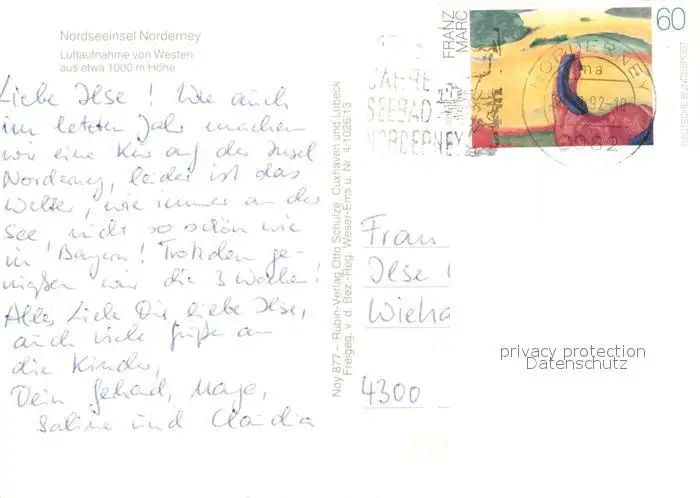 Nordseeinsel Norderney
Luftaufnahme von Westen
aus etwa 1000 m Höhe
Liebe Ilse! Wie auch
im letzten Jahr machen
wir eine Kur auf der Insel
Norderney, leider ist das
Wetter, wie immer an der
See, nicht so schön wie
in Bayern! Trotzdem ge-
nießen wir die 3 Wochen!
Alles Liebe Dir, liebe Ilse,
auch viele Grüße an
die Kinder,
Dein Gerhard,
Sabine und Claudia
Noy 877 – Rubin-Verlag Otto Schulze, Cuxhaven und Lübeck
Freigeg. v. d. Bez.-Reg. Weser-Ems u. Nr. 41026/13
JAHRE
SEEBAD
NORDERNEY
FRANZ
MARC
60
DEUTSCHE BUNDESPOST
NORDERNEY
92-1
Frau
Ilse
Wieha
4300
privacy protection
Datenschutz